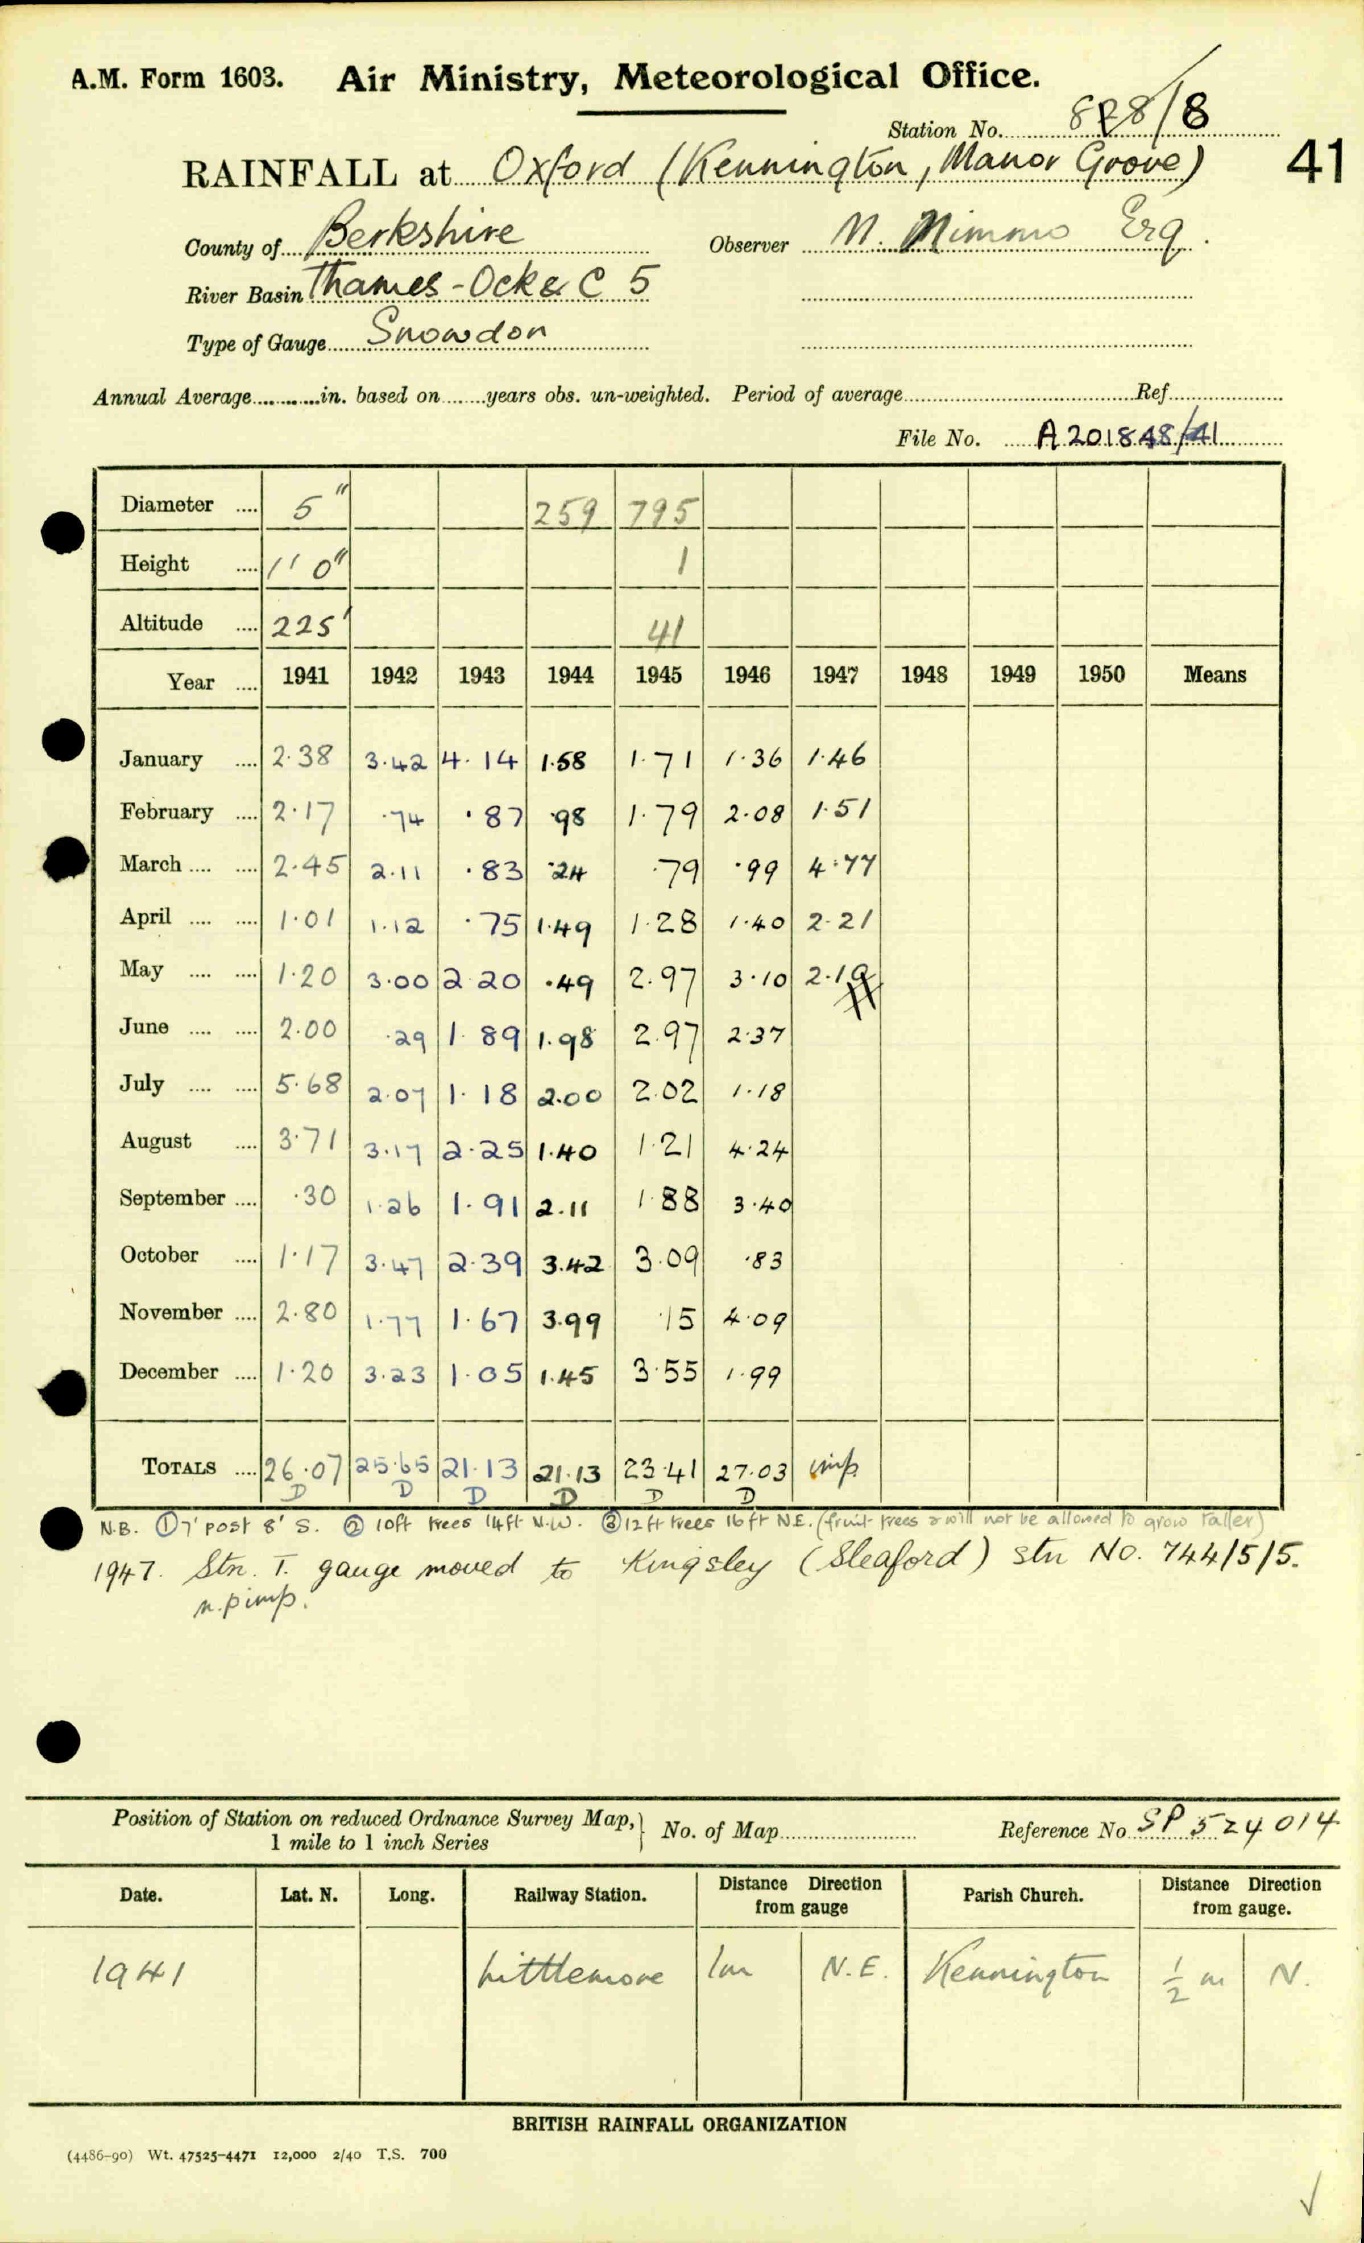 A.M. Form 1603. Air Ministry, Meteorological Office.
Station No. 828/8
41
RAINFALL at Oxford (Kennington, Manor Grove)
County of Berkshire Observer N. Nimmo Esq.
River Basin Thames - Ock &c C 5
Type of Gauge Snowdon
Annual Average............in. based on.......years obs. un-weighted. Period of average........Ref........
File No. A201848/41
Diameter .... 5" 259 795
Height .... 1' 0" 1
Altitude .... 225' 41
Year .... 1941 1942 1943 1944 1945 1946 1947 1948 1949 1950 Means
January .... 2.38 3.42 4.14 1.58 1.71 1.36 1.46
February .... 2.17 .74 .87 .98 1.79 2.08 1.51
March .... .... 2.45 2.11 .83 .24 .79 .99 4.77
April .... .... 1.01 1.12 .75 1.49 1.28 1.40 2.21
May .... .... 1.20 3.00 2.20 .49 2.97 3.10 2.19
June .... .... 2.00 .29 1.89 1.98 2.97 2.37
July .... .... 5.68 2.07 1.18 2.00 2.02 1.18
August .... 3.71 3.17 2.25 1.40 1.21 4.24
September .... .30 1.26 1.91 2.11 1.88 3.40
October .... 1.17 3.47 2.39 3.42 3.09 .83
November .... 2.80 1.77 1.67 3.99 .15 4.09
December .... 1.20 3.23 1.05 1.45 3.55 1.99
TOTALS .... 26.07 25.65 21.13 21.13 23.41 27.03 imp
D D D D D D
N.B. ① 7' post 8' S. ② 10ft trees 14ft N.W. ③ 12ft trees 16ft N.E. (fruit trees & will not be allowed to grow taller)
1947. Stn. T. gauge moved to Kingsley (Sleaford) stn No. 744/5/5.
n.p imp.
Position of Station on reduced Ordnance Survey Map, No. of Map........ Reference No SP 524 014
1 mile to 1 inch Series
Date. Lat. N. Long. Railway Station. Distance Direction from gauge Parish Church. Distance Direction from gauge.
1941 Littlemore 1m N.E. Kennington ½ m N.
BRITISH RAINFALL ORGANIZATION
(4486-90) Wt. 47525-4471 12,000 2/40 T.S. 700